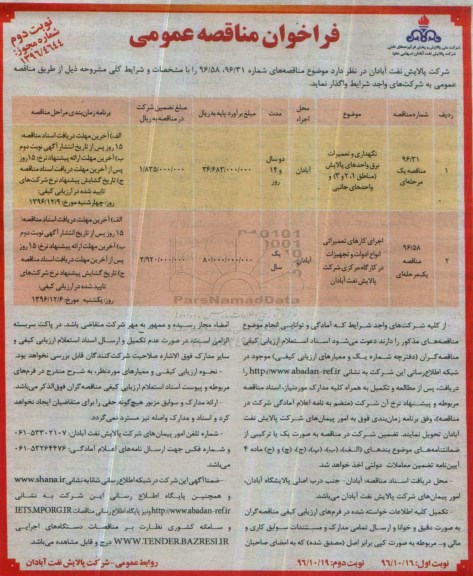 نوبت دوم
شماره مجوز:
۱۳۹۶/۴۶۴۴
فراخوان مناقصه عمومی
شرکت ملی پالایش و پخش فرآورده‌های نفتی
شرکت پالایش نفت آبادان (سهامی عام)
شرکت پالایش نفت آبادان در نظر دارد موضوع مناقصه‌های شماره ۹۶/۳۱، ۹۶/۵۸ را با مشخصات و شرایط کلی مشروحه ذیل از طریق مناقصه
عمومی به شرکت‌های واجد شرایط واگذار نماید.
ردیف شماره مناقصه موضوع محل اجراء مدت مبلغ برآورد پایه به ریال مبلغ تضمین شرکت در مناقصه به ریال برنامه زمان‌بندی مراحل مناقصه
۱ ۹۶/۳۱ مناقصه یک مرحله‌ای نگهداری و تعمیرات برق واحدهای پالایش (مناطق ۱، ۲ و ۳) و واحدهای جانبی آبادان دو سال و ۱۴ روز ۳۶/۶۸۳/۰۰۰/۰۰۰ ۱/۸۳۵/۰۰۰/۰۰۰
الف) آخرین مهلت دریافت اسناد مناقصه:
۱۵ روز پس از تاریخ انتشار آگهی نوبت دوم
ب) آخرین مهلت ارائه پیشنهاد نرخ: ۱۵ روز
پس از آخرین مهلت دریافت اسناد مناقصه
ج) تاریخ گشایش پیشنهاد نرخ شرکت‌های
تایید شده در ارزیابی کیفی:
روز: چهارشنبه مورخ: ۱۳۹۶/۱۲/۹
۲ ۹۶/۵۸ مناقصه یک‌مرحله‌ای اجرای کارهای تعمیراتی انواع ادوات و تجهیزات در کارگاه مرکزی شرکت پالایش نفت آبادان آبادان یک سال ۸۰/۰۰۰/۰۰۰/۰۰۰ ۲/۹۲۰/۰۰۰/۰۰۰
الف) آخرین مهلت دریافت اسناد مناقصه:
۱۵ روز پس از تاریخ انتشار آگهی نوبت دوم
ب) آخرین مهلت ارائه پیشنهاد نرخ: ۱۵ روز
پس از آخرین مهلت دریافت اسناد مناقصه
ج) تاریخ گشایش پیشنهاد نرخ شرکت‌های
تایید شده در ارزیابی کیفی:
روز: یکشنبه مورخ: ۱۳۹۶/۱۲/۶
ParsNamadData
از کلیه شرکت‌های واجد شرایط که آمادگی و توانایی انجام موضوع
مناقصه‌های مذکور را دارند دعوت می‌شود اسناد استعلام ارزیابی کیفی
مناقصه‌گران (دفترچه شماره یک و معیارهای ارزیابی کیفی) موجود در
شبکه اطلاع‌رسانی این شرکت به نشانی http://www.abadan-ref.ir را
دریافت، پس از مطالعه و تکمیل به همراه کلیه مدارک موردنیاز، اسناد مناقصه
مربوطه و پیشنهاد نرخ آن شرکت (منضم به نامه اعلام آمادگی شرکت در
مناقصه)، وفق برنامه زمان‌بندی فوق به امور پیمان‌های شرکت پالایش نفت
آبادان تحویل نمایند. تضمین شرکت در مناقصه به صورت یک یا ترکیبی از
ضمانتنامه‌های موضوع بندهای (الف)، (ب)، (پ)، (ج)، (چ) و (ح) ماده ۴
آیین‌نامه تضمین معاملات دولتی اخذ خواهد شد.
- محل دریافت اسناد مناقصه: آبادان- جنب درب اصلی پالایشگاه آبادان،
امور پیمان‌های شرکت پالایش نفت آبادان می‌باشد.
- تکمیل کلیه اطلاعات خواسته شده در فرم‌های ارزیابی کیفی مناقصه‌گران
به صورت دقیق و خوانا و ارسال تمامی مدارک و مستندات سوابق کاری و
مالی و... مربوطه به صورت کپی برابر اصل (مصدق شده) که به امضای صاحبان
امضاء مجاز رسیده و ممهور به مهر شرکت متقاضی باشد. در پاکت سربسته
الزامی است. در صورت عدم تکمیل و ارسال اسناد استعلام ارزیابی کیفی و
سایر مدارک فوق الاشاره صلاحیت شرکت‌کنندگان قابل بررسی نخواهد بود.
- نحوه ارزیابی کیفی و معیارهای موردنظر، به شرح مندرج در فرم‌های
مربوطه و پیوست اسناد استعلام ارزیابی کیفی مناقصه‌گران فوق‌الذکر می‌باشد.
- ارائه مدارک و سوابق مزبور هیچ‌گونه حقی را برای متقاضیان ایجاد نخواهد
کرد و اسناد و مدارک واصله نیز مسترد نمی‌گردد.
- شماره تلفن امور پیمان‌های شرکت پالایش نفت آبادان: ۵۳۳۰۲۱۰۷-۰۶۱
و شماره فکس جهت ارسال نامه‌های اعلام آمادگی: ۵۳۲۶۴۴۷۶-۰۶۱
می‌باشد.
- ضمنا آگهی این شرکت در شبکه اطلاع‌رسانی شانا به نشانی www.shana.ir
و همچنین پایگاه اطلاع رسانی این شرکت به نشانی
http://www.abadan-ref.ir و نیز پایگاه اطلاع رسانی مناقصات IETS.MPORG.IR
و سامانه کشوری نظارت بر مناقصات دستگاه‌های اجرایی
WWW.TENDER.BAZRESI.IR درج و قابل مشاهده می‌باشد.
نوبت اول: ۹۶/۱۰/۱۶ نوبت دوم: ۹۶/۱۰/۱۹ روابط عمومی- شرکت پالایش نفت آبادان